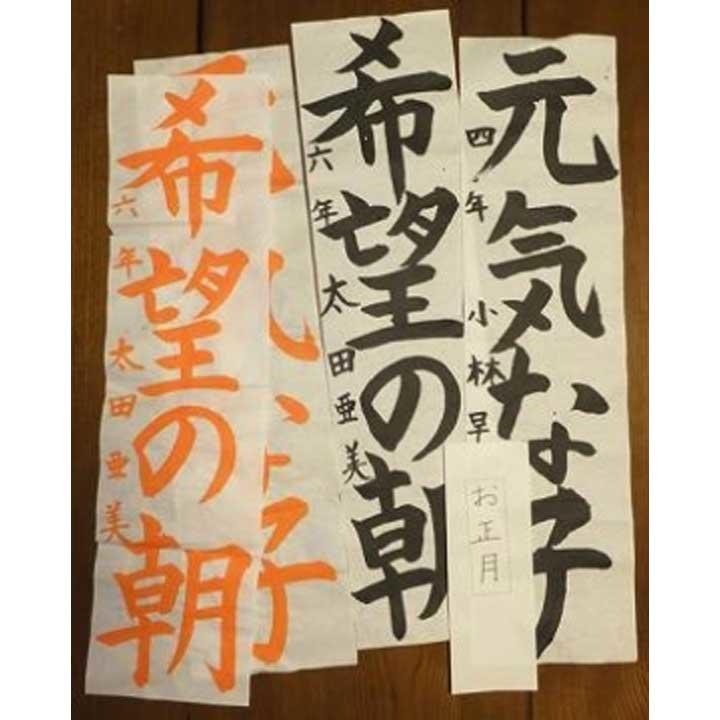 元気な子
四年 小林早
お正月
希望の朝
六年 太田亜美
子
希望の朝
六年 太田亜美